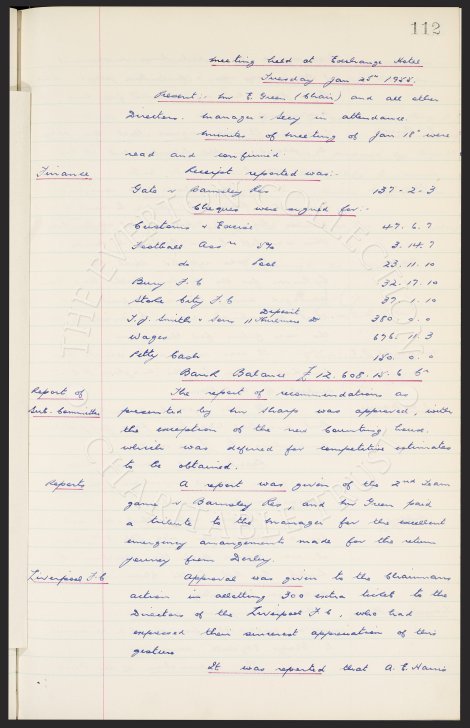 112
Meeting held at Exchange Hotel
Tuesday Jan 25th 1955.
Present:- Mr E. Green (Chair) and all other
Directors. Manager & Secy in attendance.
Minutes of Meeting of Jan 18th were
read and confirmed.
Finance
Receipt reported was:-
Gate v Barnsley Res 137-2-3
Cheques were signed for:-
Customs & Excise 47. 6. 7
Football Assn 5% 3. 14. 7
do Pool 23. 11. 10
Bury F.C 32. 17. 10
Stoke City F.C 37. 1. 10
T.J. Smith & Sons Deposit 380. 0. 0
Wages 676. 11. 3
Petty Cash 150. 0. 0
Bank Balance £12.608.15.6
Report of
Sub. Committee
The report of recommendations as
presented by Mr Sharp was approved, with
the exception of the new Counting house.
which was deferred for competitive estimates
to be obtained.
Reports
A report was given of the 2nd Team
game v Barnsley Res, and Mr Green paid
a tribute to the Manager for the excellent
emergency arrangements made for the return
journey from Derby.
Liverpool F.C
Approval was given to the Chairmans
action in allotting 300 extra ticket to the
Directors of the Liverpool F.C, who had
expressed their sincerest appreciation of this
gesture
It was reported that A. E. Harris
THE EVERTON COLLECTION
CHARITABLE TRUST